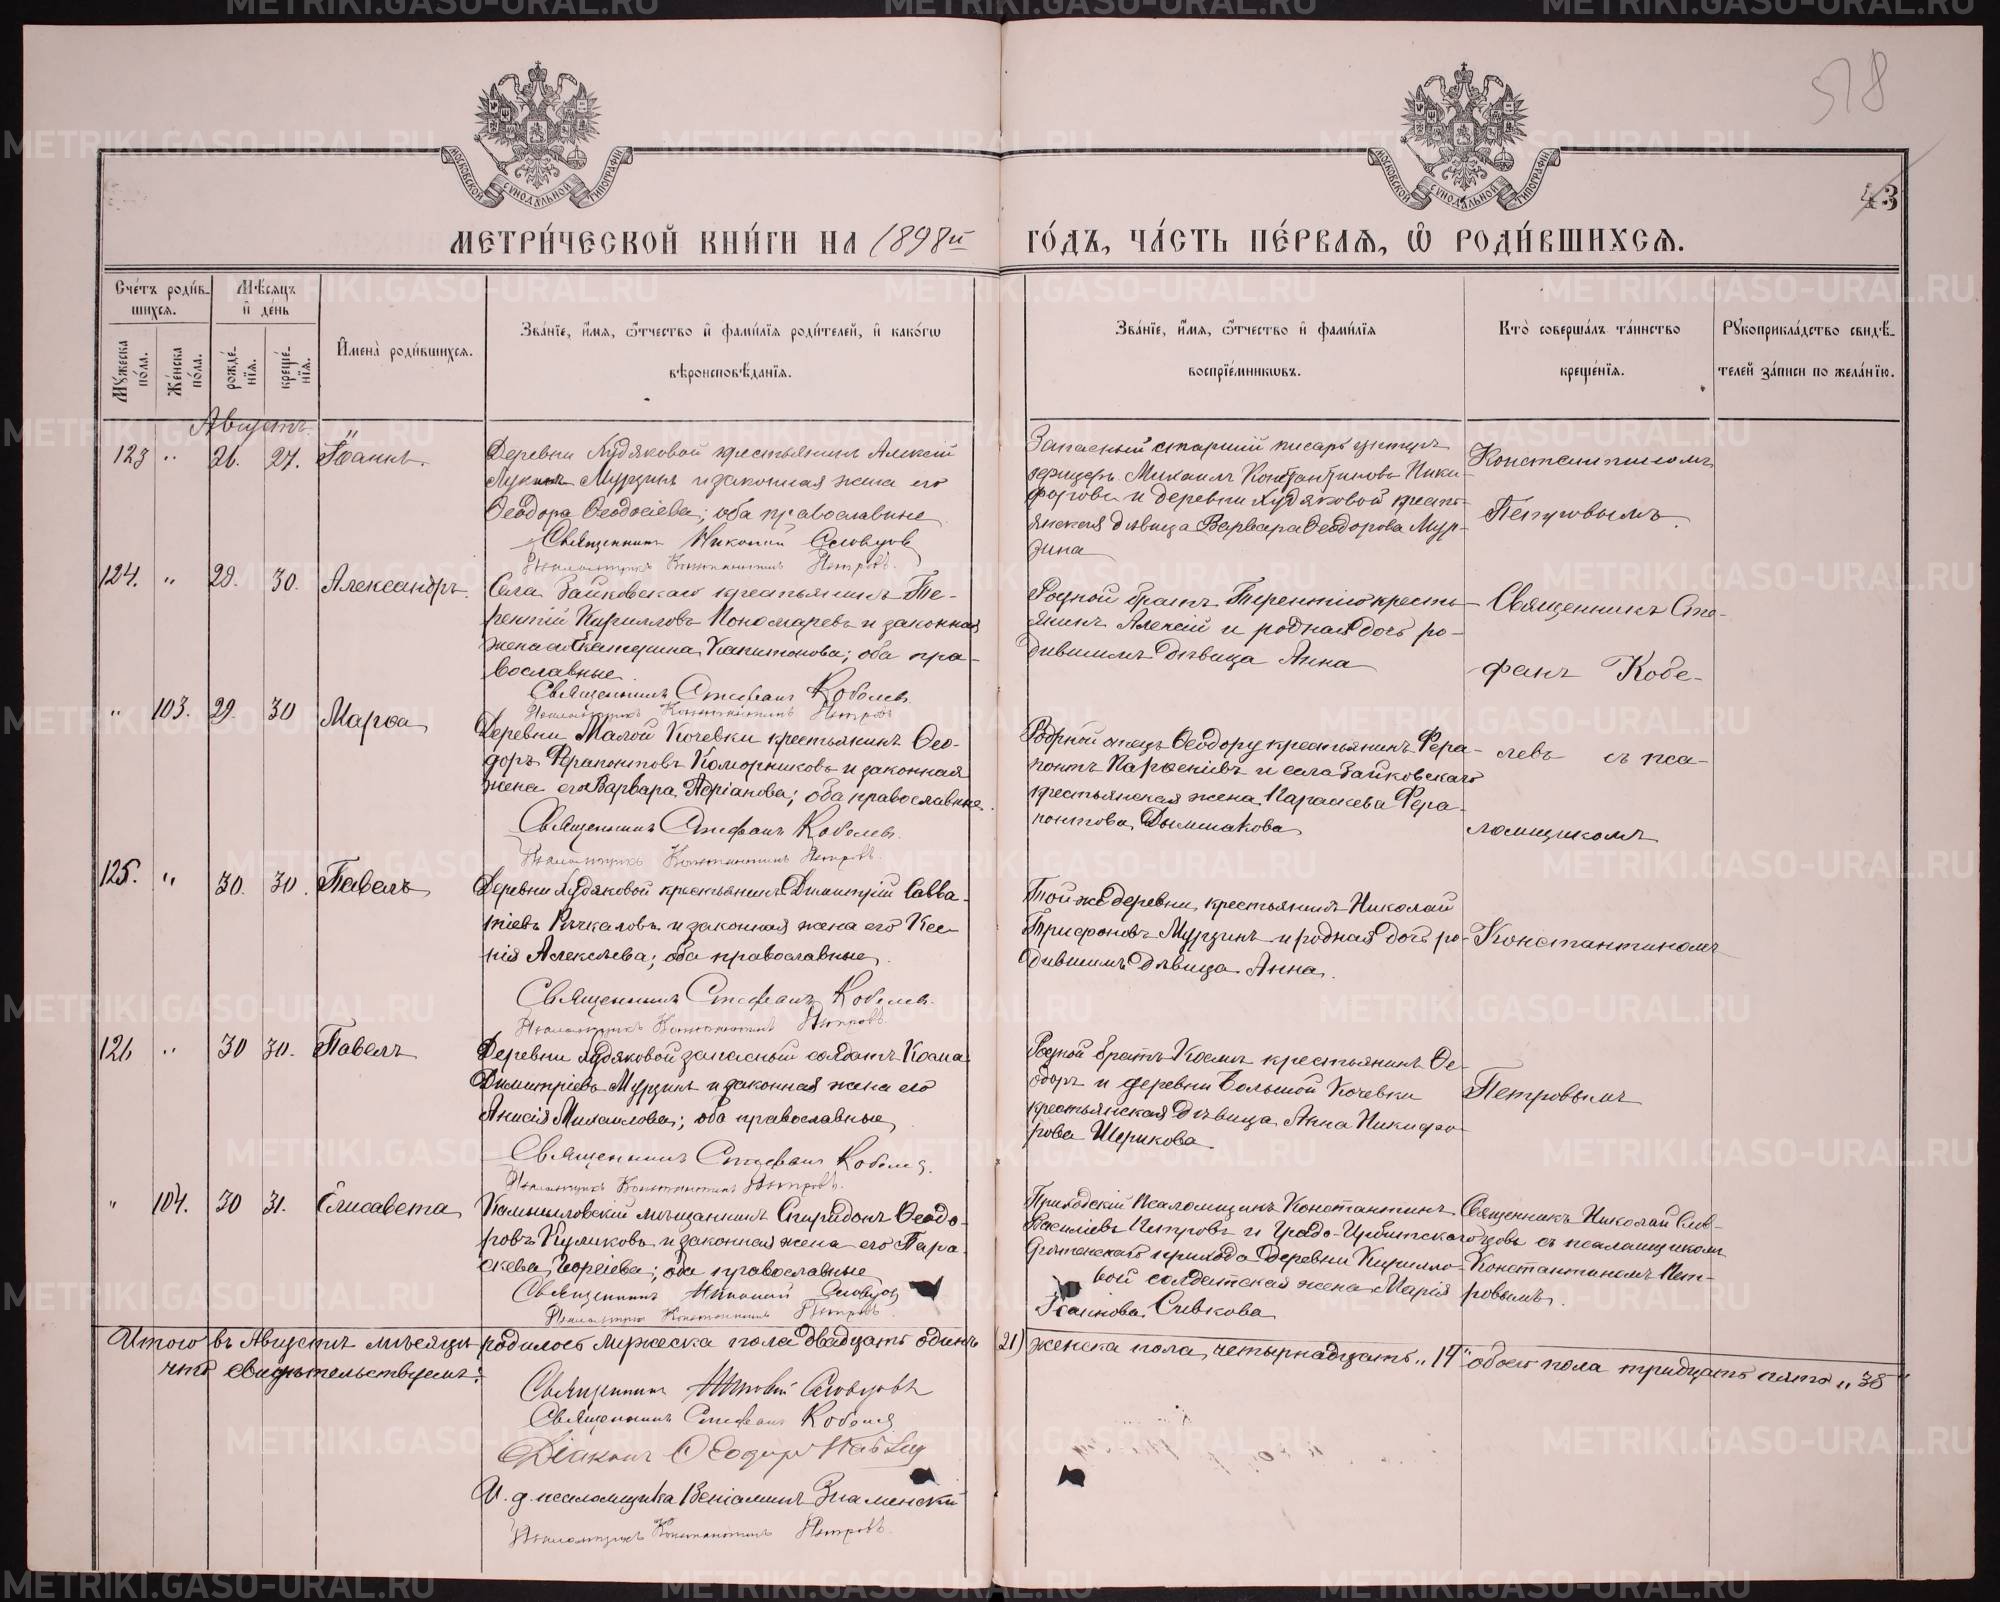 578
43
МОСКОВСКОЙ СУНОДАЛЬНОЙ ТИПОГРАФІИ
МОСКОВСКОЙ СУНОДАЛЬНОЙ ТИПОГРАФІИ
МЕТРИ́ЧЕСКОЙ КНИ́ГИ НА 1898й ГО́ДЪ, ЧА́СТЬ ПЕ́РВАѦ, Ѡ РОДИ́ВШИХСѦ.
Сче́тъ роди́вшихсѧ.
Мѣ́сѧцъ и҆ де́нь
Мꙋ́жеска по́ла.
Же́нска по́ла.
рожде́нїѧ.
креще́нїѧ.
И҆мена̀ роди́вшихсѧ.
Зва́нїе, и҆́мѧ, ѻ҆́тчество и҆ фами́лїѧ роди́телей, и҆ како́гѡ
вѣроисповѣ́данїѧ.
Зва́нїе, и҆́мѧ, ѻ҆́тчество и҆ фами́лїѧ
воспрїе́мникѡвъ.
Кто̀ соверша́лъ та́инство
креще́нїѧ.
Рꙋкоприкла́дство свидѣ́телей за́писи по жела́нїю.
Августъ
123 " 26. 27. Іоаннъ.
Деревни Худяковой крестьянинъ Алексій
Лукинъ Мурзинъ и законная жена его
Ѳеодора Ѳеодосіева; оба православные
Священникъ Николай Словцовъ
Псаломщикъ Константинъ Петровъ.
Запасный старшій писарь унтеръ
офицеръ Михаилъ Константиновъ Ники-
форовъ и деревни Худяковой кресть-
янская дѣвица Варвара Ѳеодорова Мур-
зина
Константиномъ
Петровымъ.
124. " 29. 30. Александръ.
Села Зайковскаго крестьянинъ Те-
рентій Кирилловъ Пономаревъ и законная
жена его Екатерина Капитонова; оба пра-
вославные.
Священникъ Стефанъ Кобелевъ
Псаломщикъ Константинъ Петровъ
Родной братъ Терентію кресть-
янинъ Алексій и родная дочь ро-
дившимъ дѣвица Анна
Священникъ Сте-
фанъ Кобе-
" 103. 29. 30 Марѳа
Деревни Малой Кочевки крестьянинъ Ѳео-
доръ Ферапонтовъ Коморниковъ и законная
жена его Варвара Адріанова; оба православные.
Священникъ Стефанъ Кобелевъ.
Псаломщикъ Константинъ Петровъ.
Родной отецъ Ѳеодору крестьянинъ Фера-
понтъ Парѳеніевъ и села Зайковскаго
крестьянская жена Параскева Фера-
понтова Дымшакова
левъ съ пса-
ломщикомъ
125. " 30. 30. Павелъ
Деревни Худяковой крестьянинъ Димитрій Савва-
тіевъ Рычкаловъ и законная жена его Ксе-
нія Алексѣева; оба православные.
Священникъ Стефанъ Кобелевъ.
Псаломщикъ Константинъ Петровъ.
Той же деревни, крестьянинъ Николай
Трифоновъ Мурзинъ и родная дочь ро-
дившимъ дѣвица Анна.
Константиномъ
126 " 30 30. Павелъ
Деревни Худяковой запасный солдатъ Косма
Димитріевъ Мурзинъ и законная жена его
Анисія Михаилова; оба православные
Священникъ Стефанъ Кобелев.
Псаломщикъ Константинъ Петровъ.
Родной братъ Космы крестьянинъ Ѳе-
одоръ и деревни Большой Кочевки
крестьянская дѣвица Анна Никифо-
рова Шерикова
Петровымъ
" 104. 30 31. Елисавета
Камышловскій мѣщанинъ Спиридонъ Ѳеодо-
ровъ Куликовъ и законная жена его Пара-
скева Георгіева; оба православные
Священникъ Николай Словцов
Псаломщикъ Константинъ Петровъ.
Приходскій Псаломщикъ Константинъ
Василіевъ Петровъ и Градо-Ирбитскаго
Срѣтенскаго прихода деревни Кирилло-
вой солдатская жена Марія
Сивкова
Священникъ Николай Слов-
цовъ съ псаломщикомъ
Константиномъ Пет-
ровымъ.
Итого въ Августѣ мѣсяцѣ родилось мужеска пола двадцать одинъ (21) женска пола, четырнадцать „14" обоего пола тридцать пять „35"
что свидѣтельствуемъ:
Священникъ Николай Словцовъ
Священникъ Стефанъ Кобелев
Діаконъ Ѳеодоръ
И. д. псаломщика Веніаминъ Знаменскій
Псаломщикъ Константинъ Петровъ.
METRIKI.GASO-URAL.RU